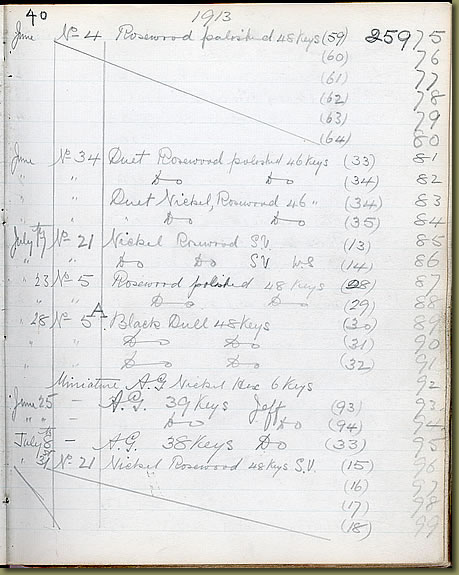 40 1913
June No 4 Rosewood polished 48 Keys (59) 25975
(60) 76
(61) 77
(62) 78
(63) 79
(64) 80
June No 34 Duet Rosewood polished 46 Keys (33) 81
" " Do Do (34) 82
" " Duet Nickel, Rosewood 46 " (34) 83
" " " Do Do (35) 84
July 17th No 21 Nickel Rosewood S.V. (13) 85
" " Do Do S.V W.S (14) 86
" 23 No 5 Rosewood polished 48 Keys (28) 87
" " Do Do (29) 88
" 28 No 5 A Black Dull 48 Keys (30) 89
Do Do (31) 90
Do Do (32) 91
Miniature A.G Nickel Hex 6 Keys 92
June 25 - A.G. 39 Keys Jeff (93) 93
" " - Do Do (94) 94
July 8th - A.G 38 Keys Do (33) 95
" 31st No 21 Nickel Rosewood 48 Keys S.V. (15) 96
(16) 97
(17) 98
(18) 99